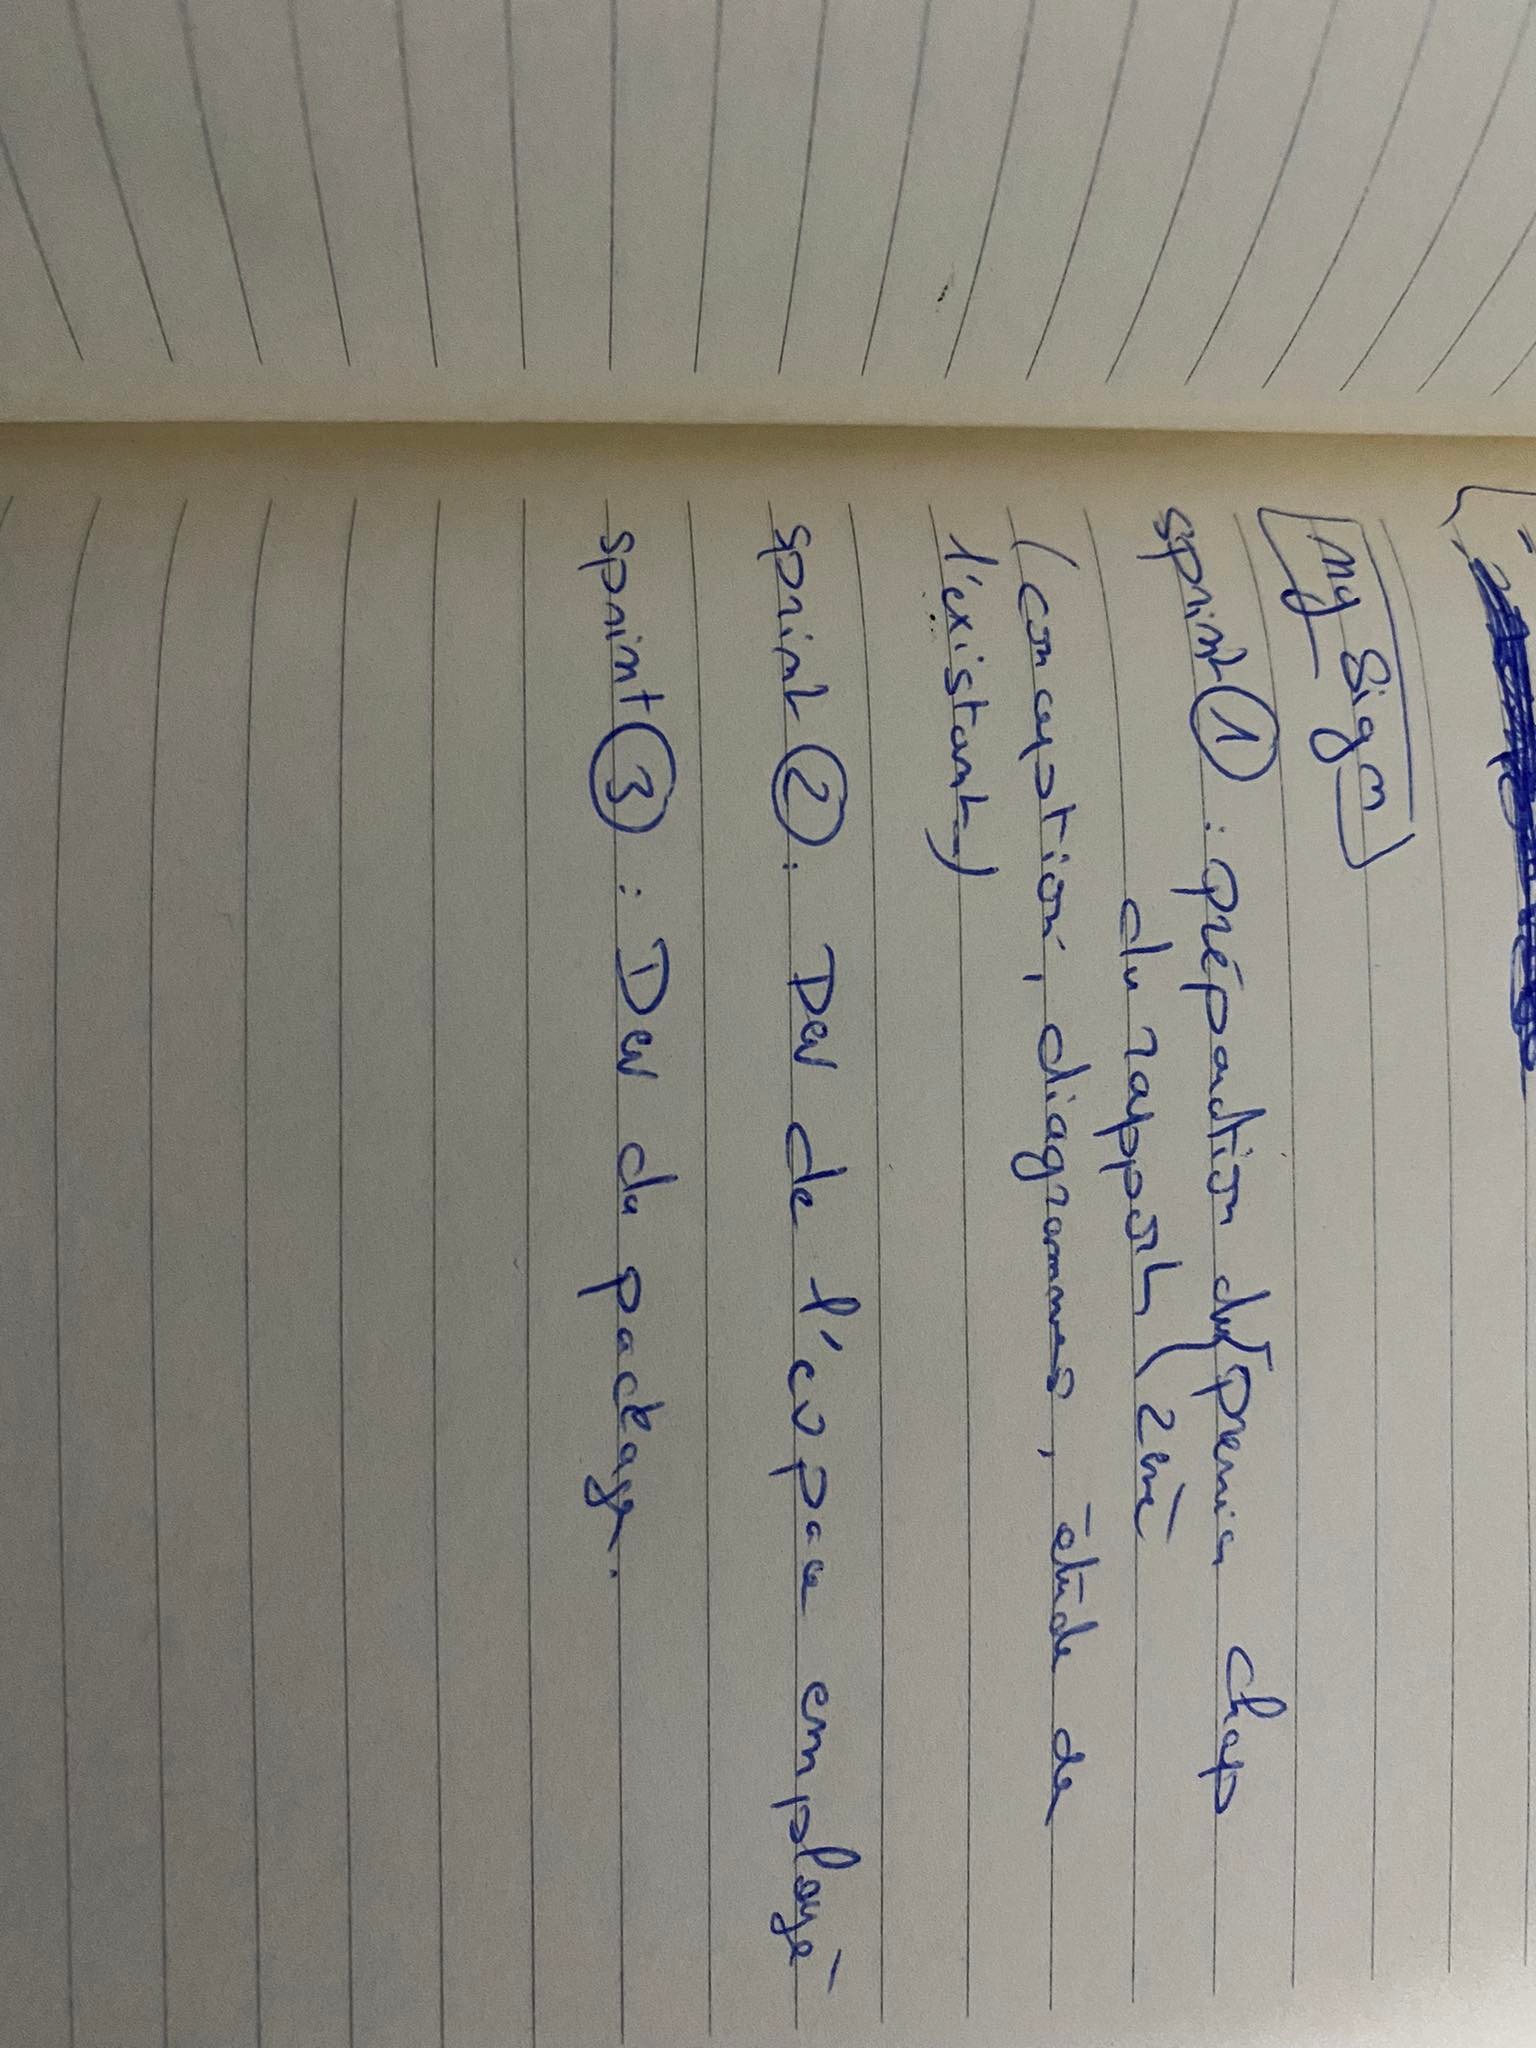 My Sign
sprint 1 : prépartion du premier chap
du rapport / 2 émé
(conception, diagrammes, étude de
l'existant)
sprint 2 : Dev de l'espace employé
sprint 3 : Dev du package.